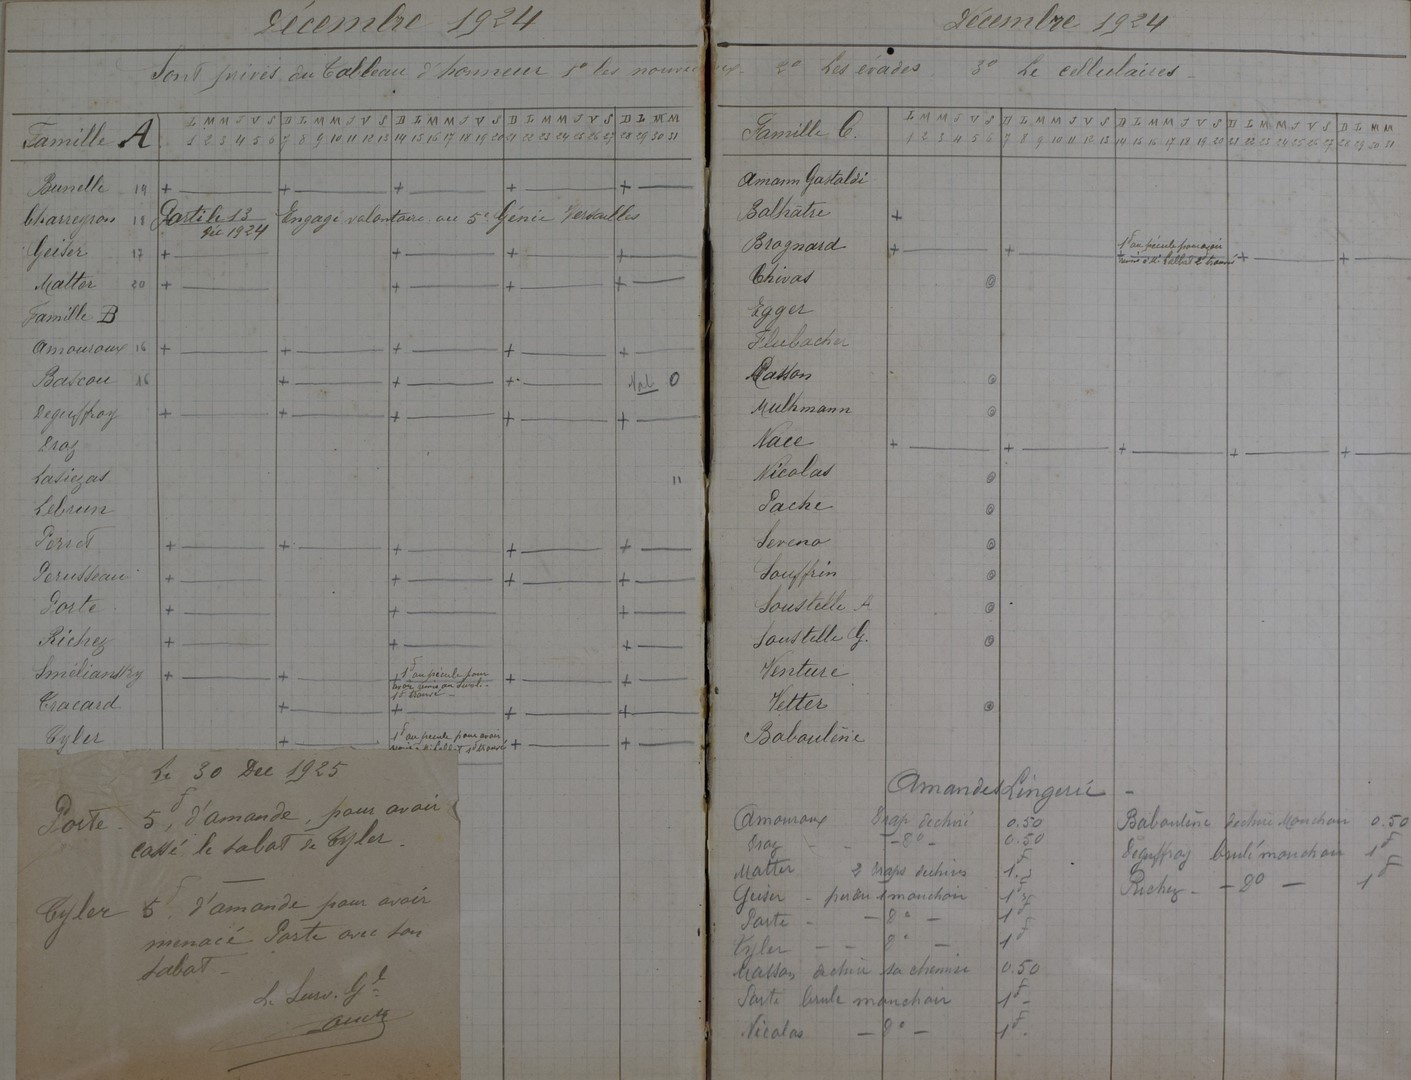 Décembre 1924
Sont privés du Tableau d'honneur 1° les nouveaux
Famille A
L M M J V S D L M M J V S D L M M J V S D L M M J V S D L M M
1 2 3 4 5 6 7 8 9 10 11 12 13 14 15 16 17 18 19 20 21 22 23 24 25 26 27 28 29 30 31
Brunelle 19 + + + + +
Charreyron 18 Parti le 13 Engagé volontaire au 5e Génie Versailles
Déc 1924
Geiser 17 + + + +
Matter 20 + + + +
Famille B
Amouroux 16 + + + + +
Bascou 16 + + + Val 0
Deguffroy + + + + +
Droz
Lasiezas "
Lebrun
Perset + + + + +
Perusseau + + + + +
Porte + + +
Richez + + +
Sméliansky + + + 1f au pécule pour + +
avoir remis au Surv.
1f trouvé
Tracard + + + +
Tyler + 1f au pécule pour avoir + +
remis à M. Collot 1f trouvé
Le 30 Dec 1925
Porte - 5f, d'amande, pour avoir
cassé le sabot de Tyler.
Tyler 5f, d'amande pour avoir
menacé Porte avec son
sabot.
Le Surv. Gl
Décembre 1924
2° Les évadés 3° Le cellulaires
Famille C.
L M M J V S D L M M J V S D L M M J V S D L M M J V S D L M M
1 2 3 4 5 6 7 8 9 10 11 12 13 14 15 16 17 18 19 20 21 22 23 24 25 26 27 28 29 30 31
Amann Gastaldi
Balhatre +
Brognard + + + 1f au pécule pour avoir + +
remis à M. Collot 1f trouvé
Chivas
Egger
Flubacher
Masson
Mulhmann
Nace + + + + +
Nicolas
Pache
Sereno
Souffrin
Soustelle A
Soustelle G.
Venture
Vetter
Babouléne
Amandes Lingerie -
Amouroux Drap dechiré 0.50
Droz - - - d° - 0.50
Matter 2 Draps dechirés 1.f
Geiser - perdu 1 mouchoir 1f
Porte - - d° - 1f
Tyler - - d° - 1f
Masson dechiré sa chemise 0.50
Porte brulé mouchoir 1f
Nicolas - d° - 1f.
Babouléne dechiré Mouchoir 0.50
Deguffroy brulé mouchoir 1f
Richez - - d° - 1f